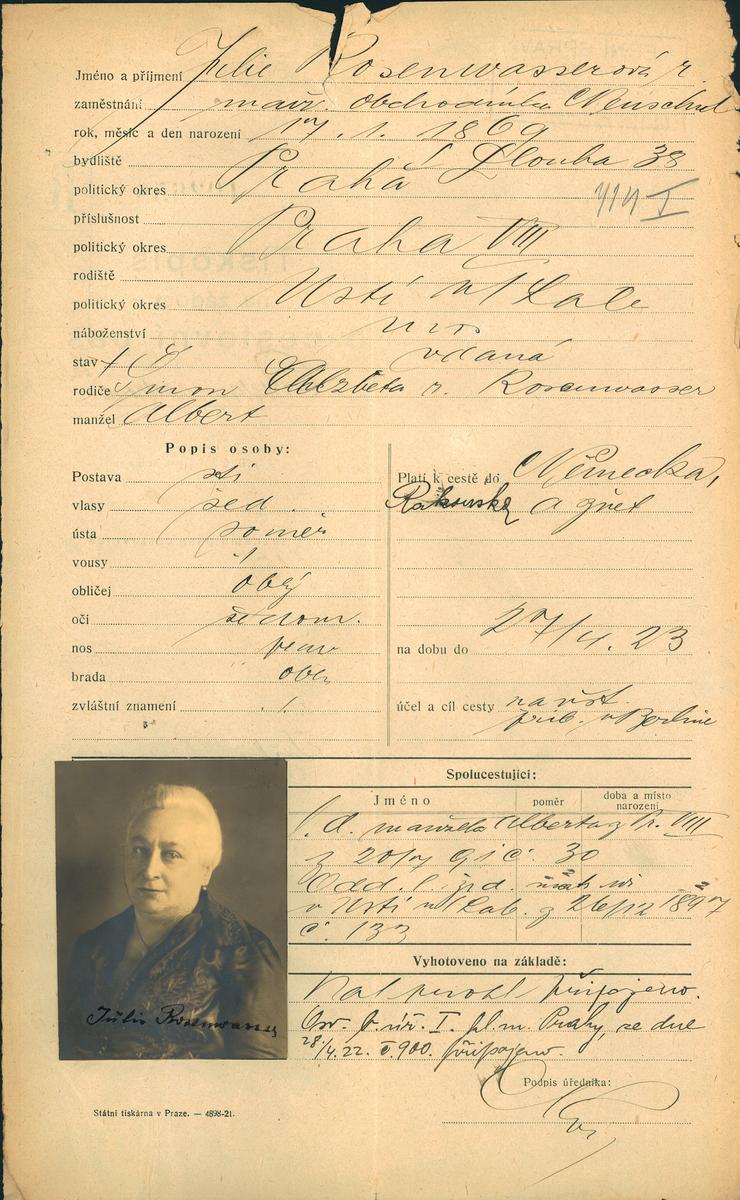 Jméno a příjmení Julie Rosenwasserová r.
zaměstnání manž. obchodníka Neuschul
rok, měsíc a den narození 17. 1. 1869
bydliště Praha I Dlouhá 38
politický okres
příslušnost
politický okres Praha VIII
rodiště Ústí n/Lab
politický okres
náboženství
stav vdaná
rodiče Simon Alžběta r. Rosenwasser
manžel Albert
Popis osoby:
Postava stř
vlasy šed.
ústa poměr
vousy /
obličej oblý
oči šedom.
nos
brada oblá
zvláštní znamení /
Platí k cestě do Německa,
Rakouska a zpět
na dobu do 27/4. 23
účel a cíl cesty navšt.
příb. v Berlíně
Spolucestující:
Jméno poměr doba a místo narození
d. manžela Alberta z P. VIII
z č. 30
Odd. l. žid.
v Ústí n/Lab. z 26/12 1897
č. 133
Vyhotoveno na základě:
připojeno.
I. hl. m. Prahy, ze dne
28/4. 22. č. 900. připojeno.
Podpis úředníka:
Julie Rosenwasser
Státní tiskárna v Praze. — 4898-21.